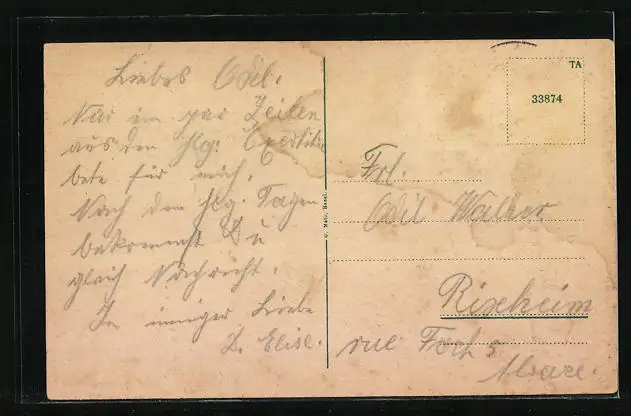 Liebes Odil.
Nur ein par Zeilen
aus den hlg. Exerzitien
bete für mich.
Nach den hlg. Tagen
bekommst Du
gleich Nachricht.
In inniger Liebe
D. Elise.
G. Metz, Basel.
TA
33874
Frl.
Odil Walker
Rixheim
rue
Alsace.